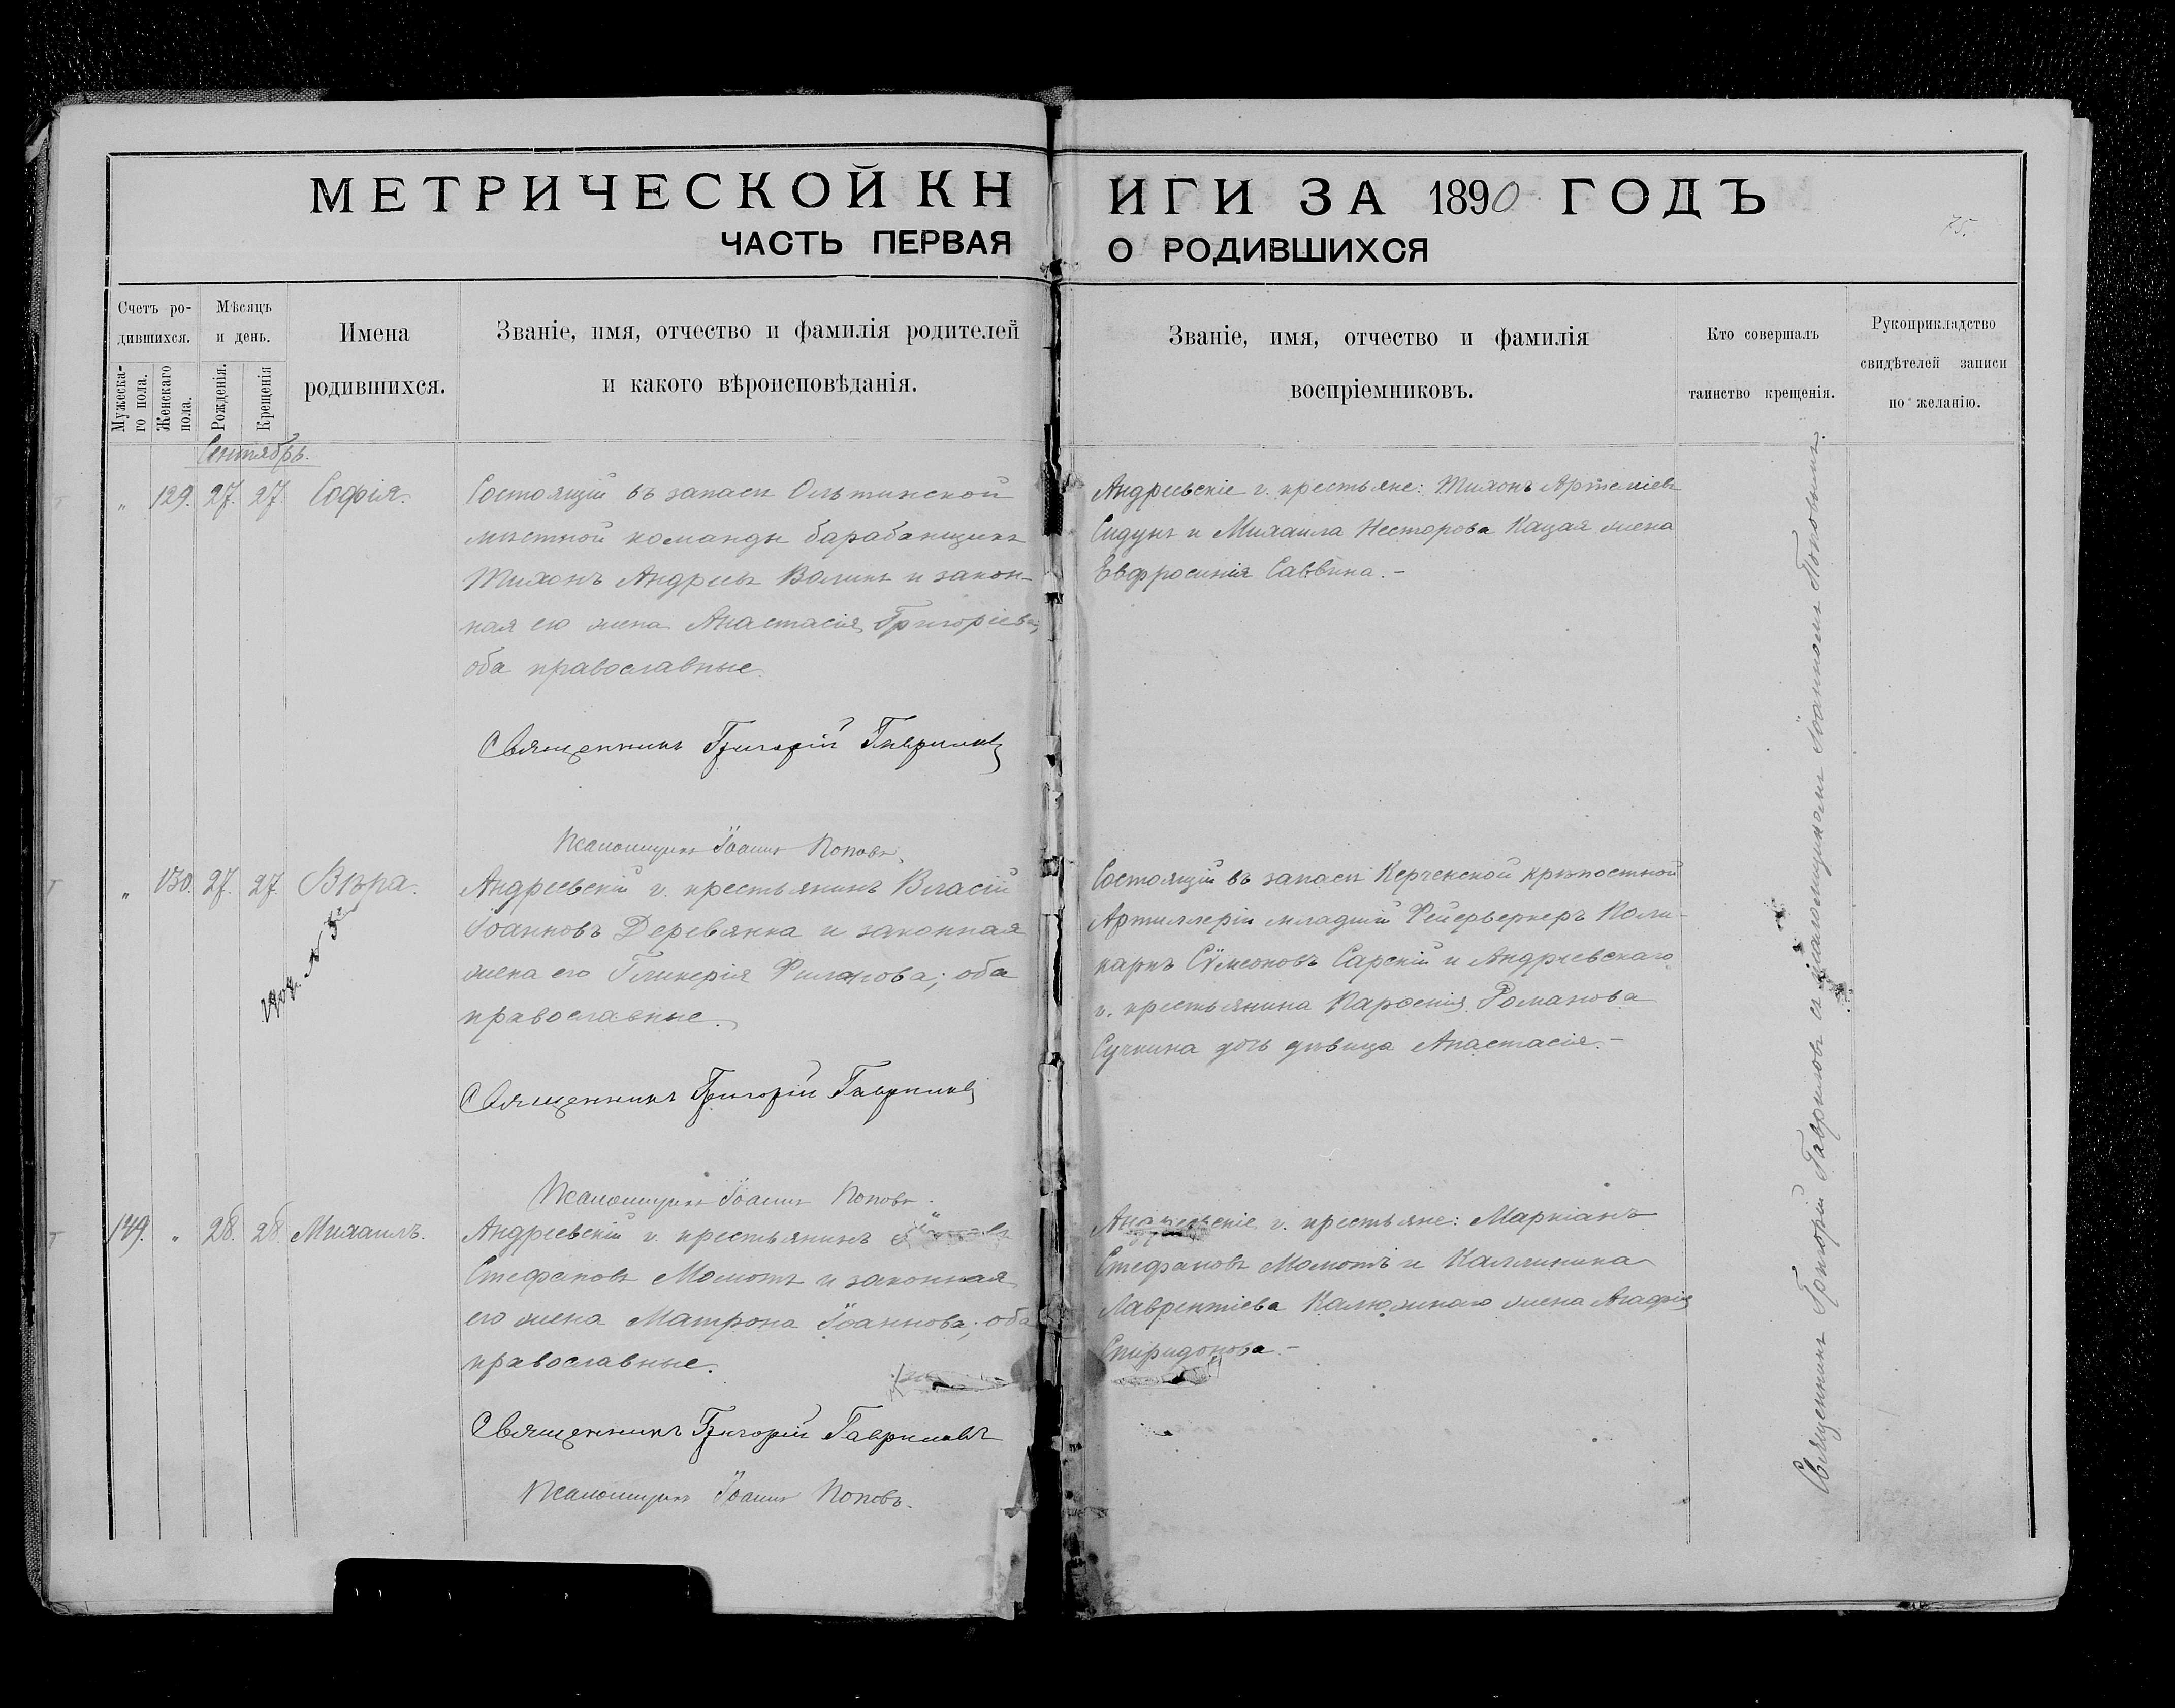 МЕТРИЧЕСКОЙ КНИГИ ЗА 1890 ГОДЪ
ЧАСТЬ ПЕРВАЯ О РОДИВШИХСЯ
75.
Счетъ ро-
дившихся.
Мужеска-
го пола.
Женскаго
пола.
Мѣсяцъ
и день.
Рожденія.
Крещенія
Имена
родившихся.
Званіе, имя, отчество и фамилія родителей
и какого вѣроисповѣданія.
Званіе, имя, отчество и фамилія
воспріемниковъ.
Кто совершалъ
таинство крещенія.
Рукоприкладство
свидѣтелей записи
по желанію.
Сентябрь.
" 129. 27. 27. Софія.
Состоящій въ запасѣ Ольтинской
мѣстной команды барабанщикъ
Тихонъ Андреевъ Воликъ и закон-
ная его жена Анастасія Григоріева,
оба православные.
Священникъ Григорій Гавриловъ
Псаломщикъ Іоаннъ Поповъ.
Андреевскіе г. крестьяне: Тихонъ Артеміевъ
Сидунъ и Михаила Несторова Кацая жена
Евфросинія Саввина.-
" 130. 27. 27. Вѣра.
Андреевскій г. крестьянинъ Власій
Іоанновъ Деревянка и законная
жена его Гликерія Филатова; оба
православные.
Священникъ Григорій Гавриловъ
Псаломщикъ Іоаннъ Поповъ.
Состоящій въ запасѣ Керченской крѣпостной
Артиллеріи младшій Фейерверкеръ Поли-
карпъ Сѵмеоновъ Сарскій и Андреевскаго
г. крестьянина Парѳенія Романова
Сучкина дочь дѣвица Анастасія.-
149. " 28. 28. Михаилъ.
Андреевскій г. крестьянинъ
Стефановъ Момотъ и законная
его жена Матрона Іоаннова; оба
православные.
Священникъ Григорій Гавриловъ
Псаломщикъ Іоаннъ Поповъ.
Андреевскіе г. крестьяне: Маркіанъ
Стефановъ Момотъ и Каллиника
Лаврентіева Калюжнаго жена Агафія
Спиридонова.-
Священникъ Григорій Гавриловъ съ псаломщикомъ Іоанномъ Поповымъ.